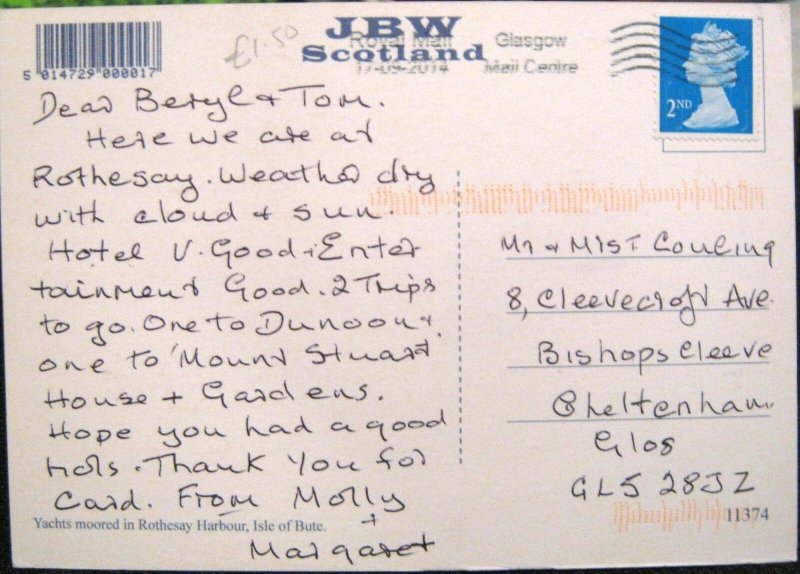 JBW
Scotland
£1.50
Royal Mail Glasgow
17-09-2014 Mail Centre
5 014729 000017
2ND
Dear Beryl & Tom.
Here we are at
Rothesay. Weather dry
with cloud & sun.
Hotel V. Good & Enter
tainment Good. 2 Trips
to go. One to Dunoon &
one to Mount Stuart
House + Gardens.
Hope you had a good
hols. Thank You for
Card. From Molly
+
Margaret
Yachts moored in Rothesay Harbour, Isle of Bute.
Mr & Mrs T. Couling
8, Cleevecroft Ave.
Bishops Cleeve
Cheltenham
Glos
GL5 28JZ
11374